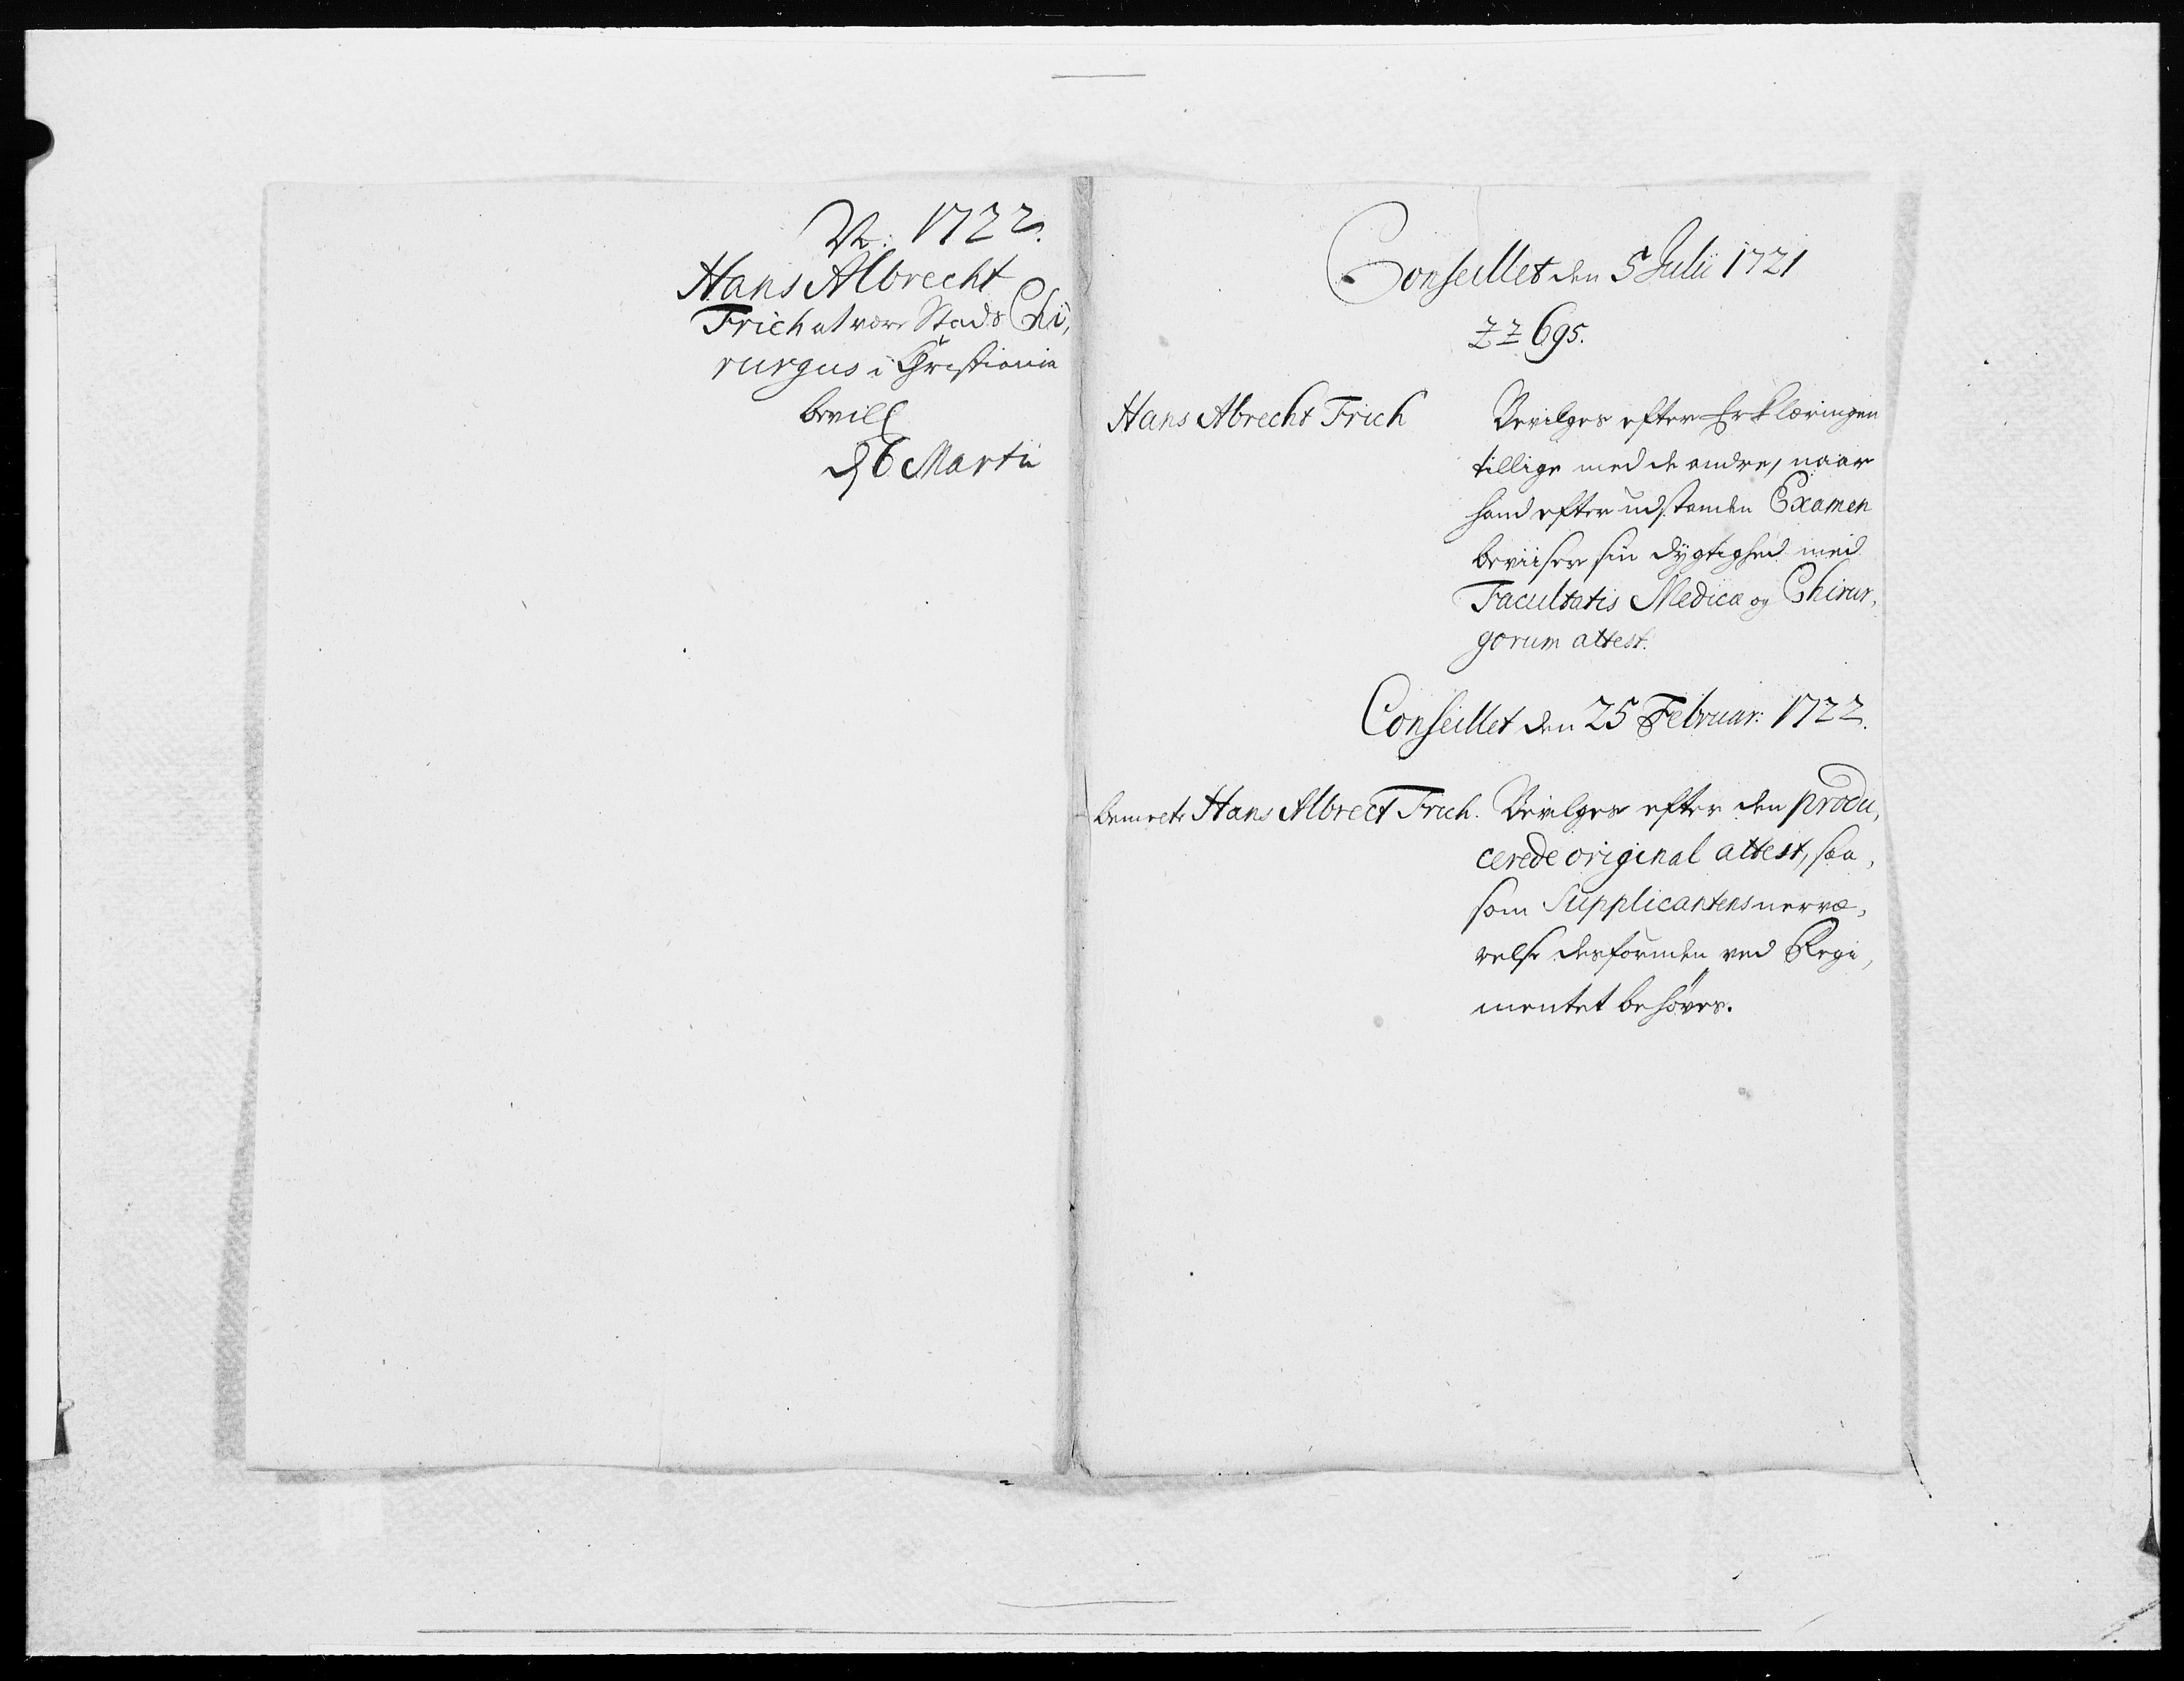 1722.
Hans Albrecht
Frich at være Stads Chi,
rurgus i Christiania
bevill
d 6 Martii
Conseillet den 5 Julii 1721
ZZ 695.
Hans Abrecht Frich
Bevilges efter Erklæringen
tillige med de andre, naar
hand efter udstanden Examen
beviiser sin dygtighed med
Facultatis Medicæ og Chirur,
gorum attest.
Conseillet den 25 Februar: 1722.
bemelte Hans Albrect Frich. Bevilges efter den produ,
cerede original attest, saa,
som Supplicantens nervæ,
relse desforuden ved Regi,
mentet behøves.